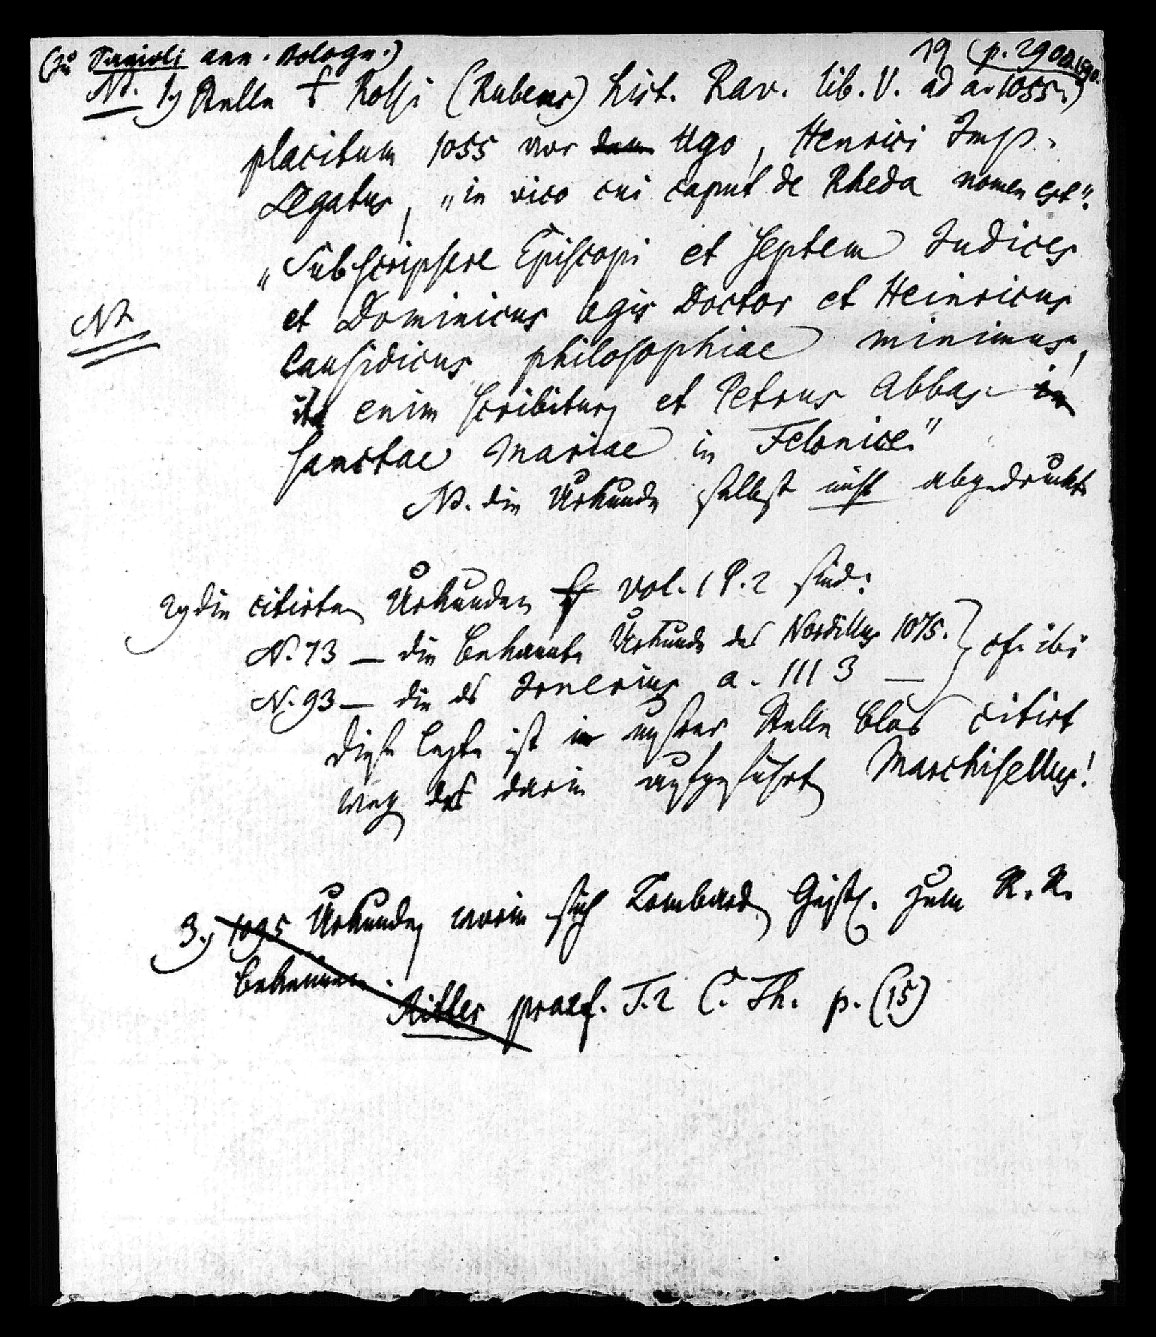 (zu Savioli ann. Bologn.) 19 (p. 290
NB. 1) Stelle Rossi (Rubeus) hist. Rav. lib. V. ad a. 1055.)
placitum 1055 vor dem Ugo, Henrici Imp.
Legatus, „in vico cui caput de Rheda nomen est".
„Subscripsere Episcopi et septem Judices
et Dominicus legis Doctor et Heinricus
NB
Causidicus philosophiae minimus,
ita enim scribitur, et Petrus Abbas in
sanctae Mariae in Felonice."
NB. die Urkunde selbst nicht abgedruckt
2) die citirten Urkunden vol. 1 P. 2 sind:
N. 73 — die bekannte Urkunde des Nordillus 1075. } cf. ibi
N. 93 — die des Irnerius a. 1113 —
diese lezte ist in unsrer Stelle blos citirt
weg. des darin aufgeführten Marchisellus!
3.) 1095 Urkunde, worin sich Lombard. Geistl. zum R. R.
bekennen.
Ritter praef. T. 2 C. Th. p. (15)